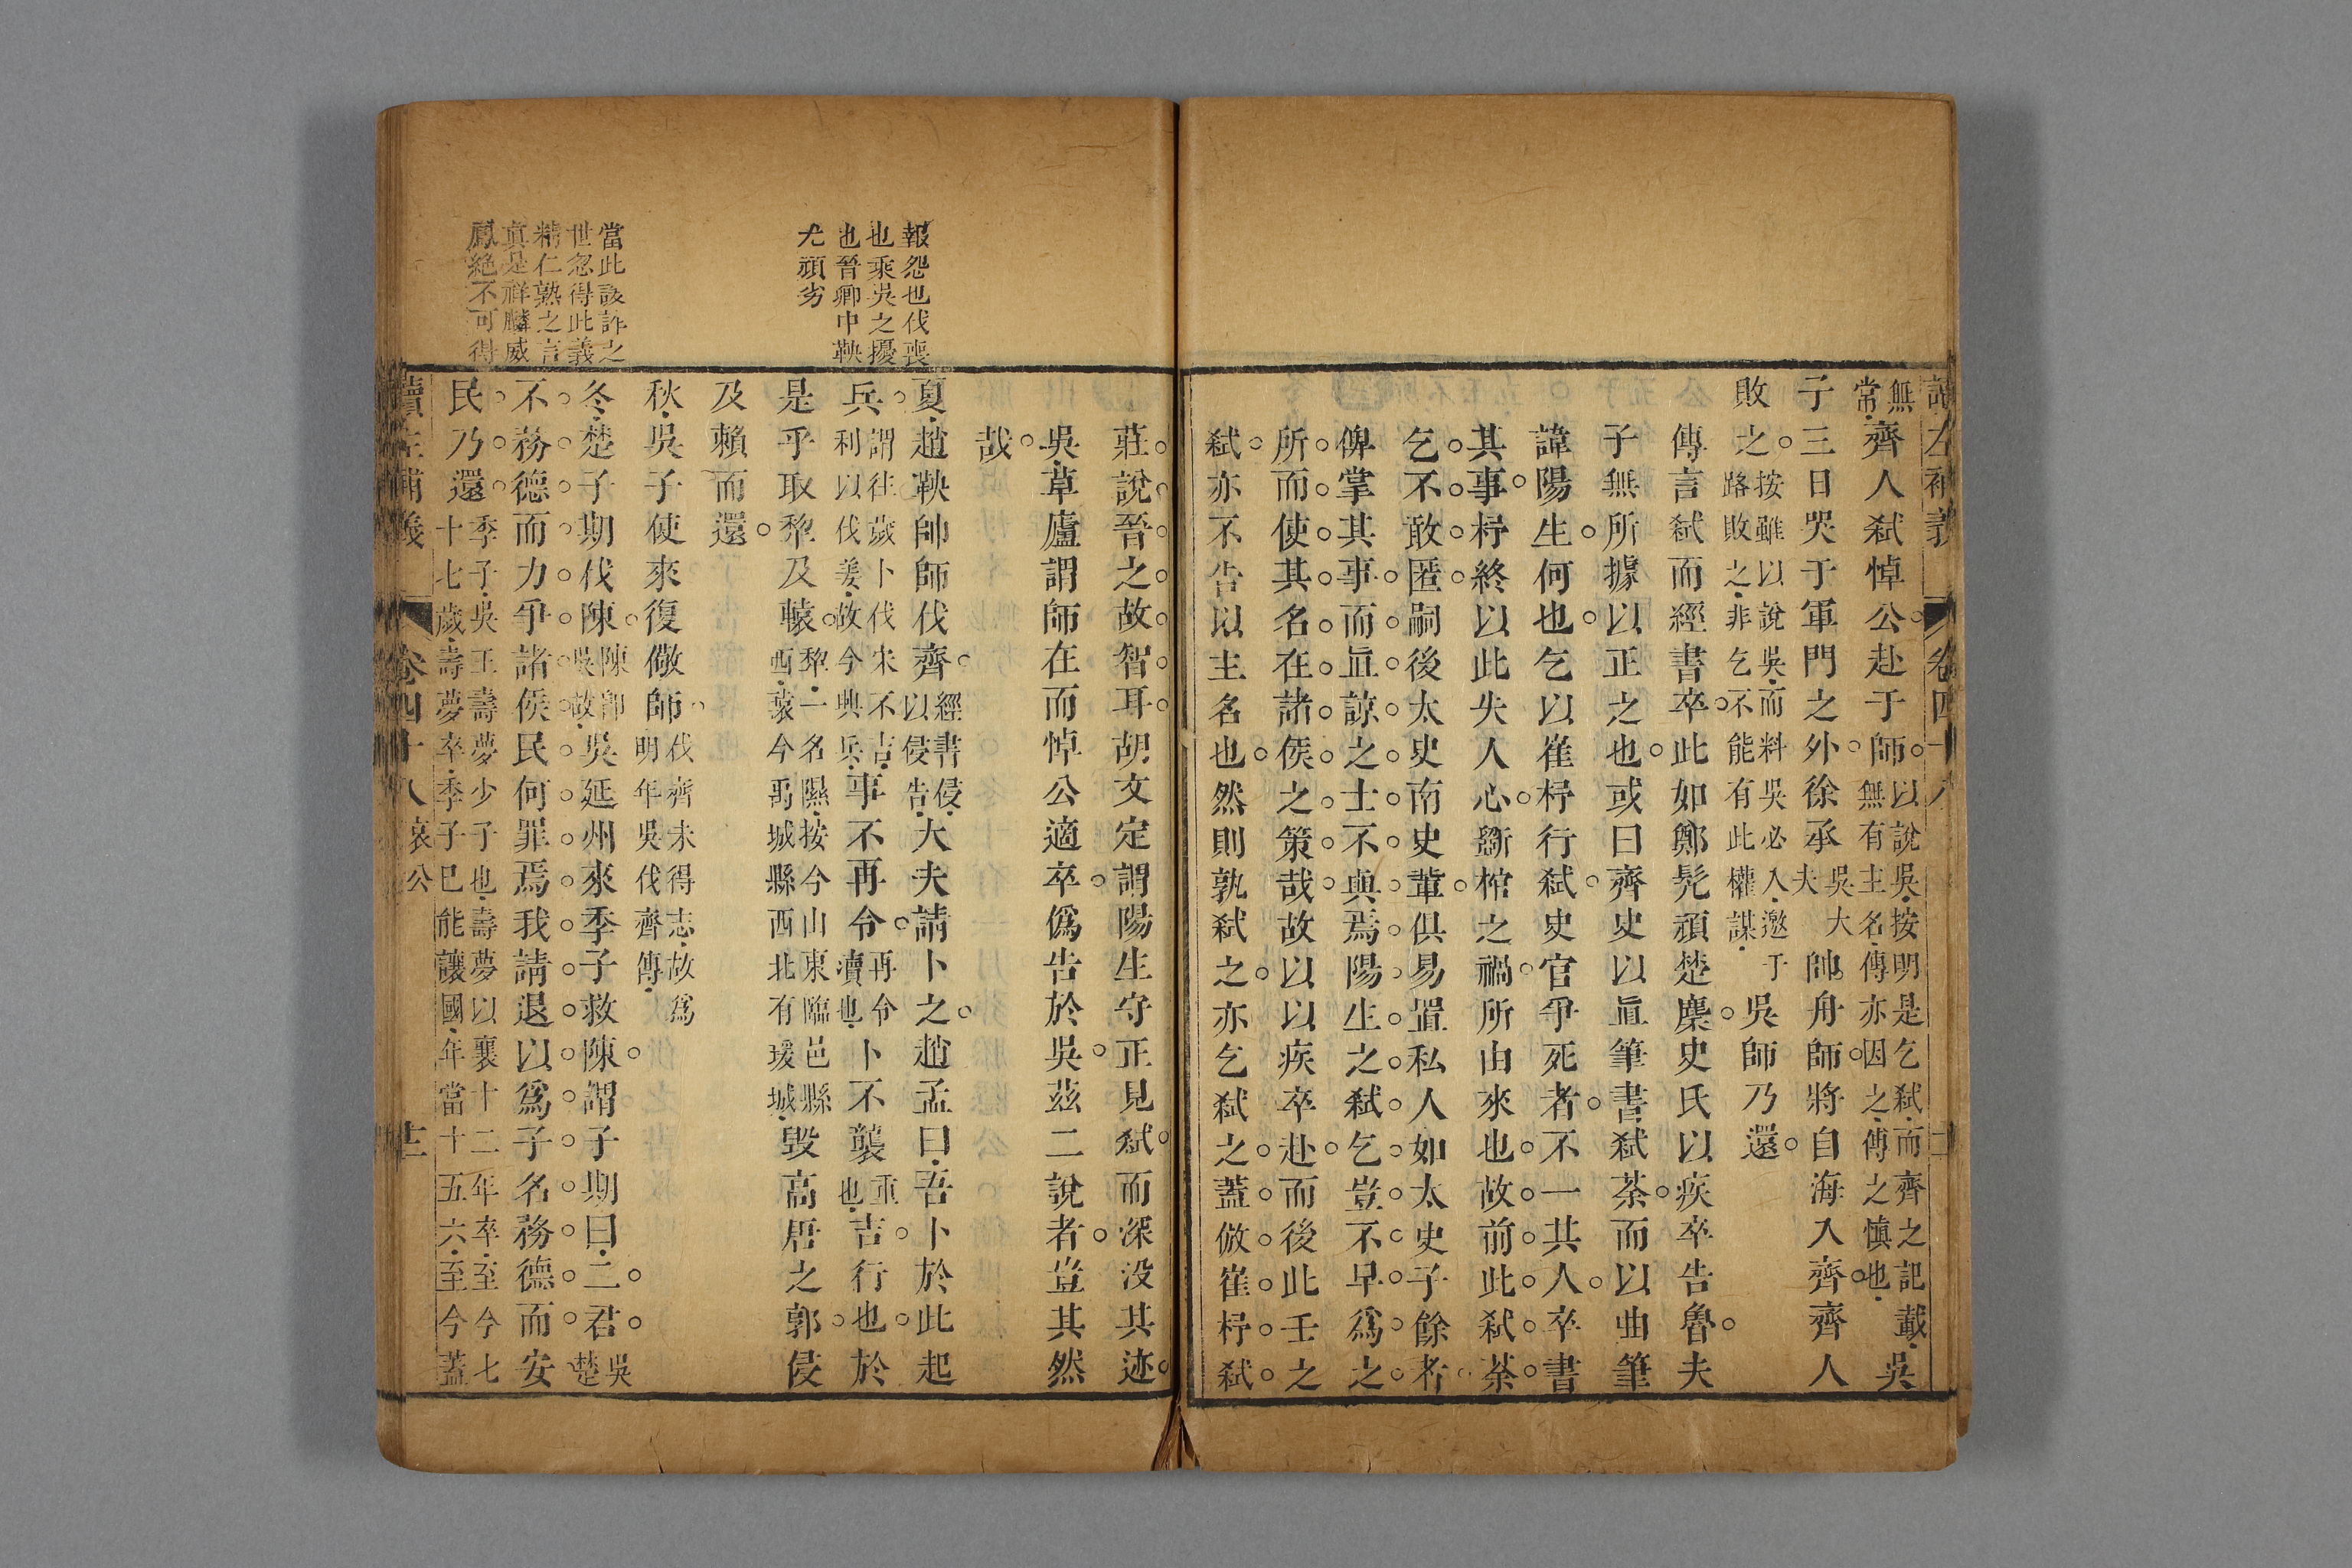 讀左補義 卷四十八 二
無常齊人弑悼公赴于師以說吳按明是乞弑而齊之記載無有主名傳亦因之傳之慎也吳
子三日哭于軍門之外徐承吳大夫帥舟師將自海入齊齊人
敗之按雖以說吳而料吳必入邀于路敗之非乞不能有此權謀吳師乃還
傳言弑而經書卒此如鄭髡頑楚麇史氏以疾卒告魯夫
子無所據以正之也或曰齊史以直筆書弑荼而以曲筆
諱陽生何也乞以崔杼行弑史官爭死者不一其人卒書
其事杼終以此失人心斷棺之禍所由來也故前此弑荼
乞不敢匿嗣後太史南史輩俱易置私人如太史子餘者
俾掌其事而直諒之士不與焉陽生之弑乞豈不早爲之
所而使其名在諸侯之策哉故以以疾卒赴而後此壬之
弑亦不告以主名也然則孰弑之亦乞弑之蓋倣崔杼弑
莊說晉之故智耳胡文定謂陽生守正見弑而深沒其迹
吳草廬謂師在而悼公適卒僞告於吳茲二說者豈其然
哉
報怨也伐喪
也乘吳之擾
也晉卿中鞅
尤頑劣
夏趙鞅帥師伐齊經書侵以侵告大夫請卜之趙孟曰吾卜於此起
兵謂往歲卜伐宋不吉利以伐姜故今興兵事不再令再令瀆也卜不襲重也吉行也於
是乎取犂及轅犂一名隰按今山東臨邑縣西轅今禹城縣西北有瑗城毀高唐之郭侵
及賴而還
秋吳子使來復儆師伐齊未得志故爲明年吳伐齊傳
當此詼詐之
世忽得此義
精仁熟之言
真是祥麟威
鳳絶不可得
冬楚子期伐陳陳卽吳故吳延州來季子救陳謂子期曰二君吳楚
不務德而力爭諸侯民何罪焉我請退以爲子名務德而安
民乃還季子吳王壽夢少子也壽夢以襄十二年卒至今七十七歲壽夢卒季子已能讓國年當十五六至今蓋
讀左補義 卷四十八 哀公 十二